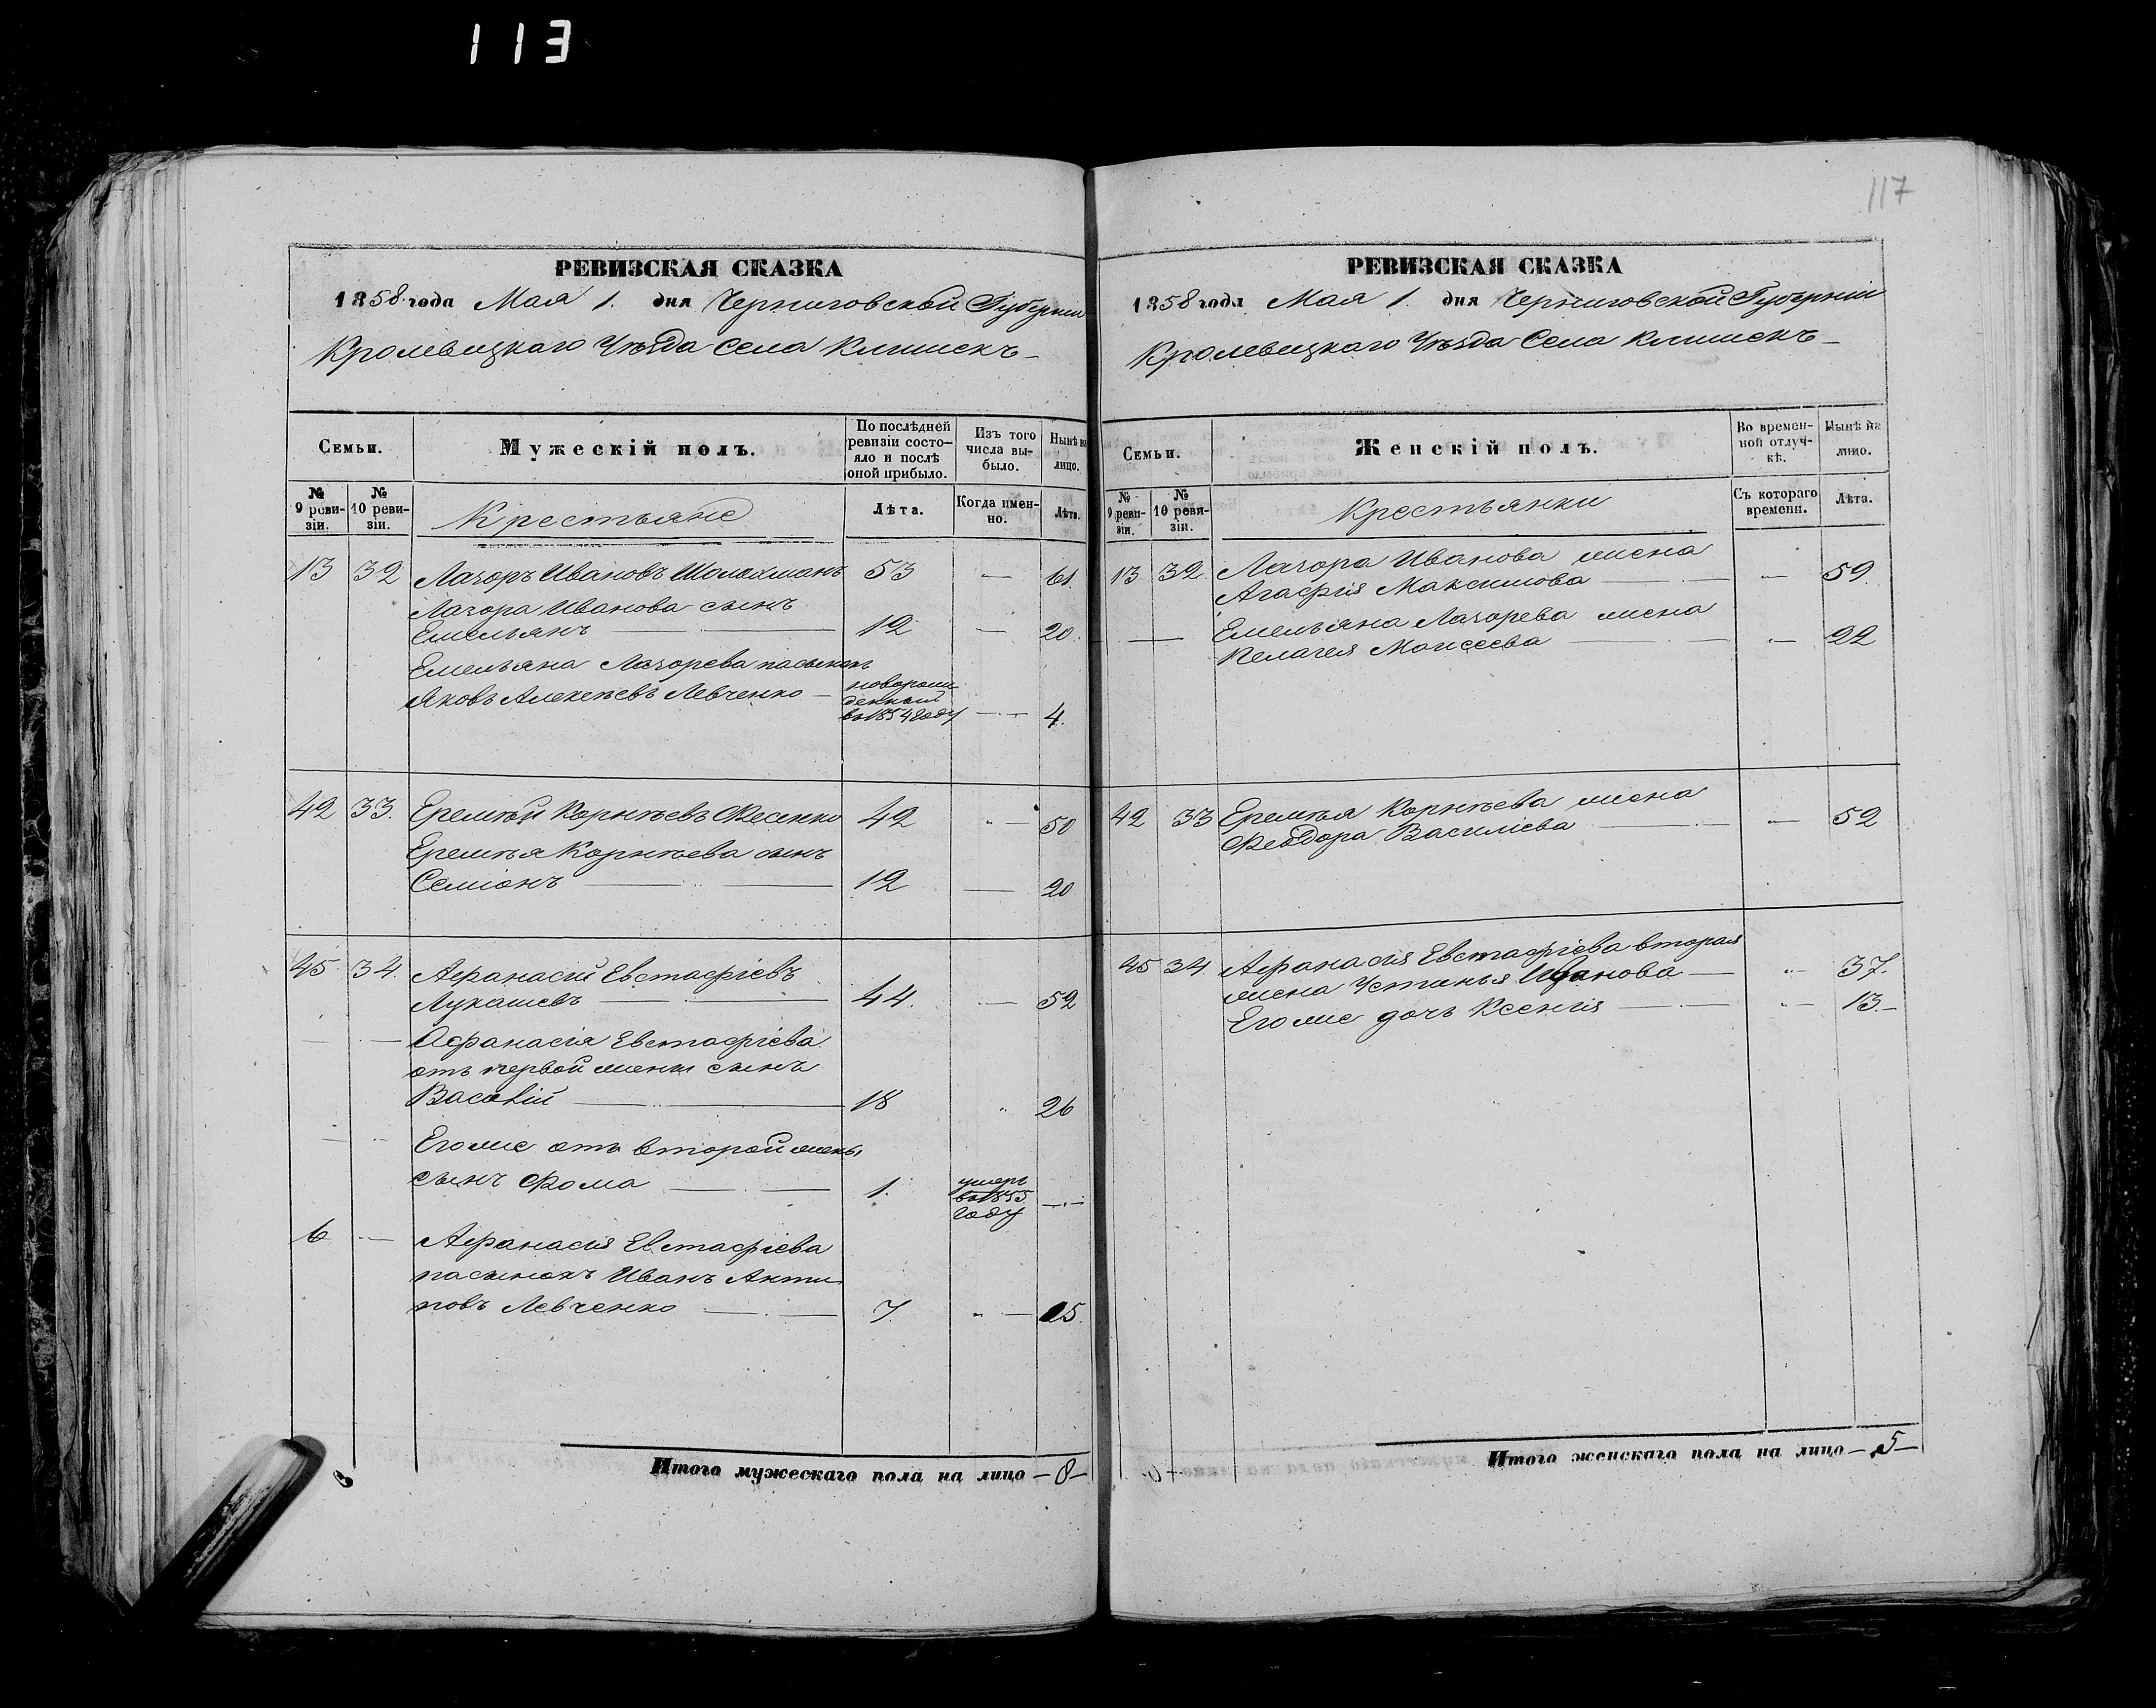 113
117
РЕВИЗСКАЯ СКАЗКА
1858 года Мая 1. дня Черниговской Губерніи
Кролевецкаго Уѣзда Села Клишекъ
Семьи.
Мужескій полъ.
По послѣдней ревизіи состо-
яло и послѣ оной прибыло.
Изъ того числа вы-
было.
Нынѣ на лицо.
№ 9 реви-
зіи.
№ 10 реви-
зіи.
Крестьяне
Лѣта.
Когда имен-
но.
Лѣта.
13 32 Лазоръ Ивановъ 53 — 61.
Лазора Иванова сынъ
Емельянъ 12 — 20.
Емельяна Лазорева пасынокъ
Яковъ Алексѣевъ Левченко — новорож
денный
въ 1854 году — 4.
42 33. Еремѣй Корнѣевъ Фесенко 42 " — 50
Еремѣя Корнѣева сынъ
Семіонъ 12 — 20.
45 34. Афанасій Евстафіевъ
Лукашевъ 44. — 52
Афанасія Евстафіева
отъ первой жены сынъ
Василій 18 " 26
Его же отъ второй жены
сынъ Фома 1. умеръ
въ 1855
году —
6 — Афанасія Евстафіева
пасынокъ Иванъ Анти
повъ Левченко 7. " — 15.
Итого мужескаго пола на лицо — 8 —
РЕВИЗСКАЯ СКАЗКА
1858 года Мая 1. дня Черниговской Губерніи
Кролевецкаго Уѣзда Села Клишекъ
Семьи.
Женскій полъ.
Во времен-
ной отлуч-
кѣ.
Нынѣ на лицо.
№ 9 реви-
зіи.
№ 10 реви-
зіи.
Крестьянки
Съ котораго
времени.
Лѣта.
13 32. Лазора Иванова жена
Агафія Максимова — 59.
Емельяна Лазорева жена
Пелагея Моисеева — 22
42 33 Еремѣя Корнѣева жена
Феодора Василіева — 52
45 34. Афанасія Евстафіева вторая
жена Устинья Иванова " — 37.
Его же дочь Ксенія " — 13.
Итого женскаго пола на лицо — 5 —